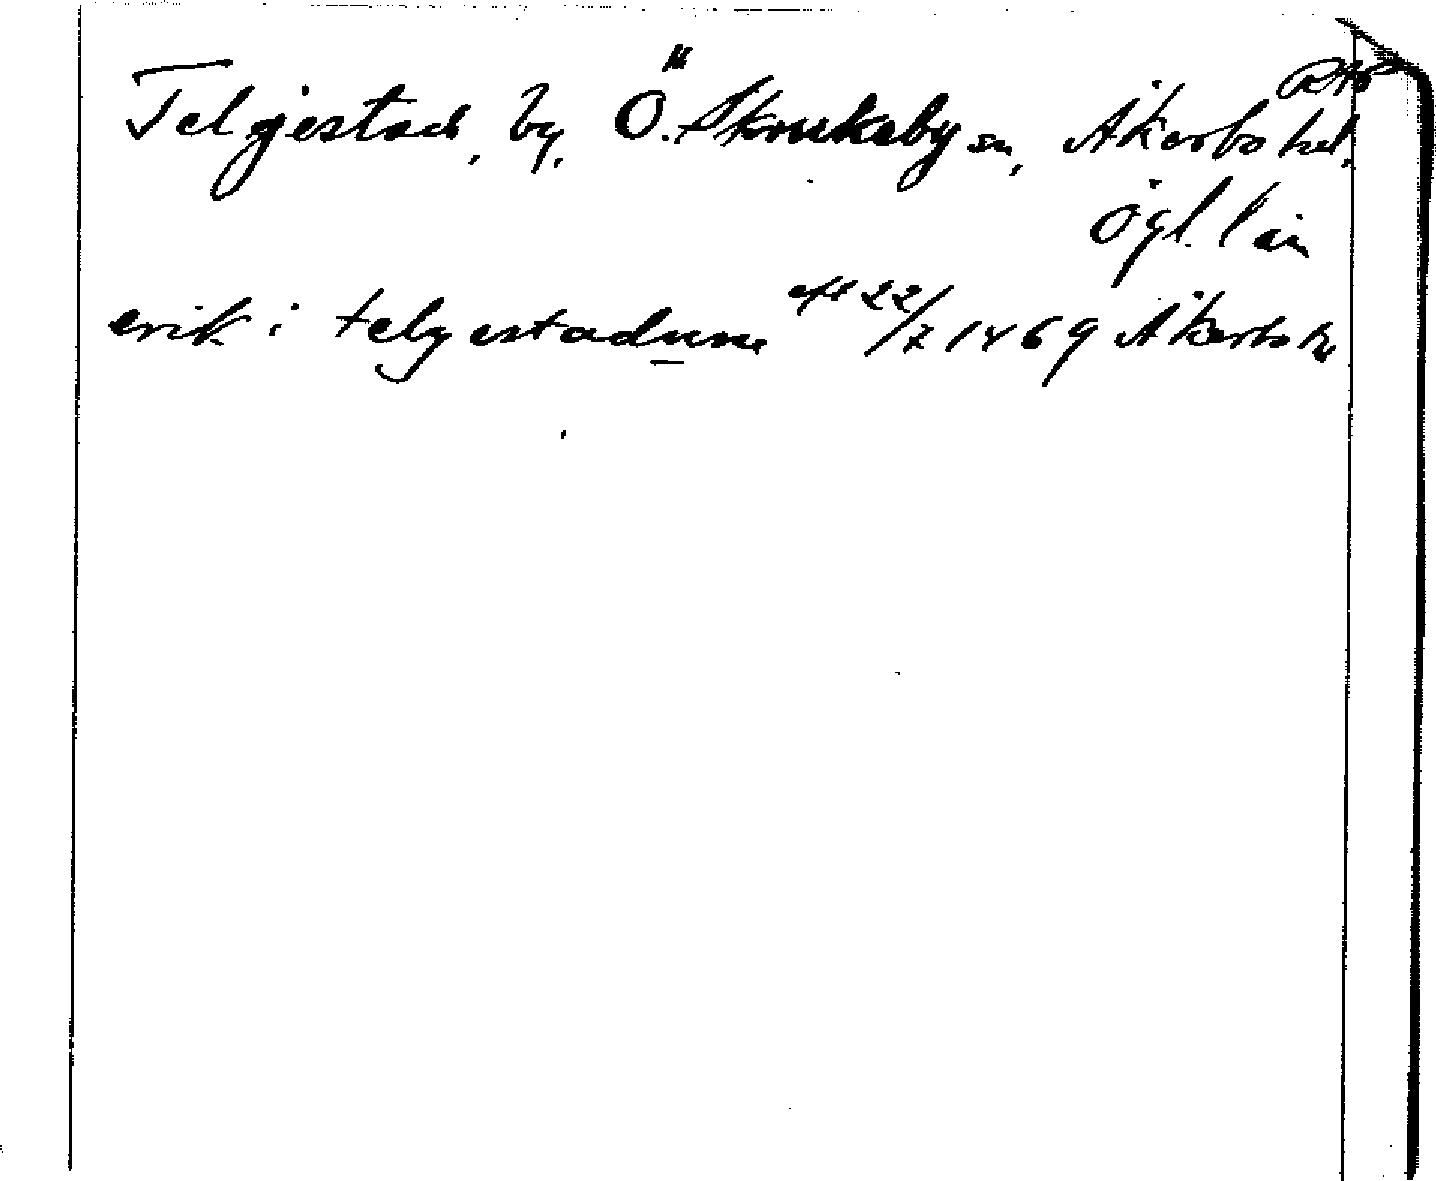 Teljestad, by, Ö. Skrukeby sn, Åkerbo hd.
Ögl. län
erik i telgestadum eft 22/7 1469 Åkerbo h